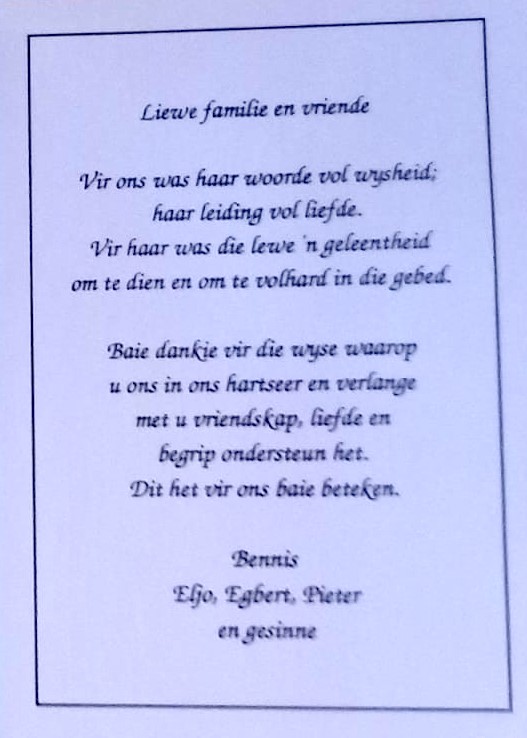 Liewe familie en vriende
Vir ons was haar woorde vol wysheid;
haar leiding vol liefde.
Vir haar was die lewe 'n geleentheid
om te dien en om te volhard in die gebed.
Baie dankie vir die wyse waarop
u ons in ons hartseer en verlange
met u vriendskap, liefde en
begrip ondersteun het.
Dit het vir ons baie beteken.
Bennis
Eljo, Egbert, Pieter
en gesinne